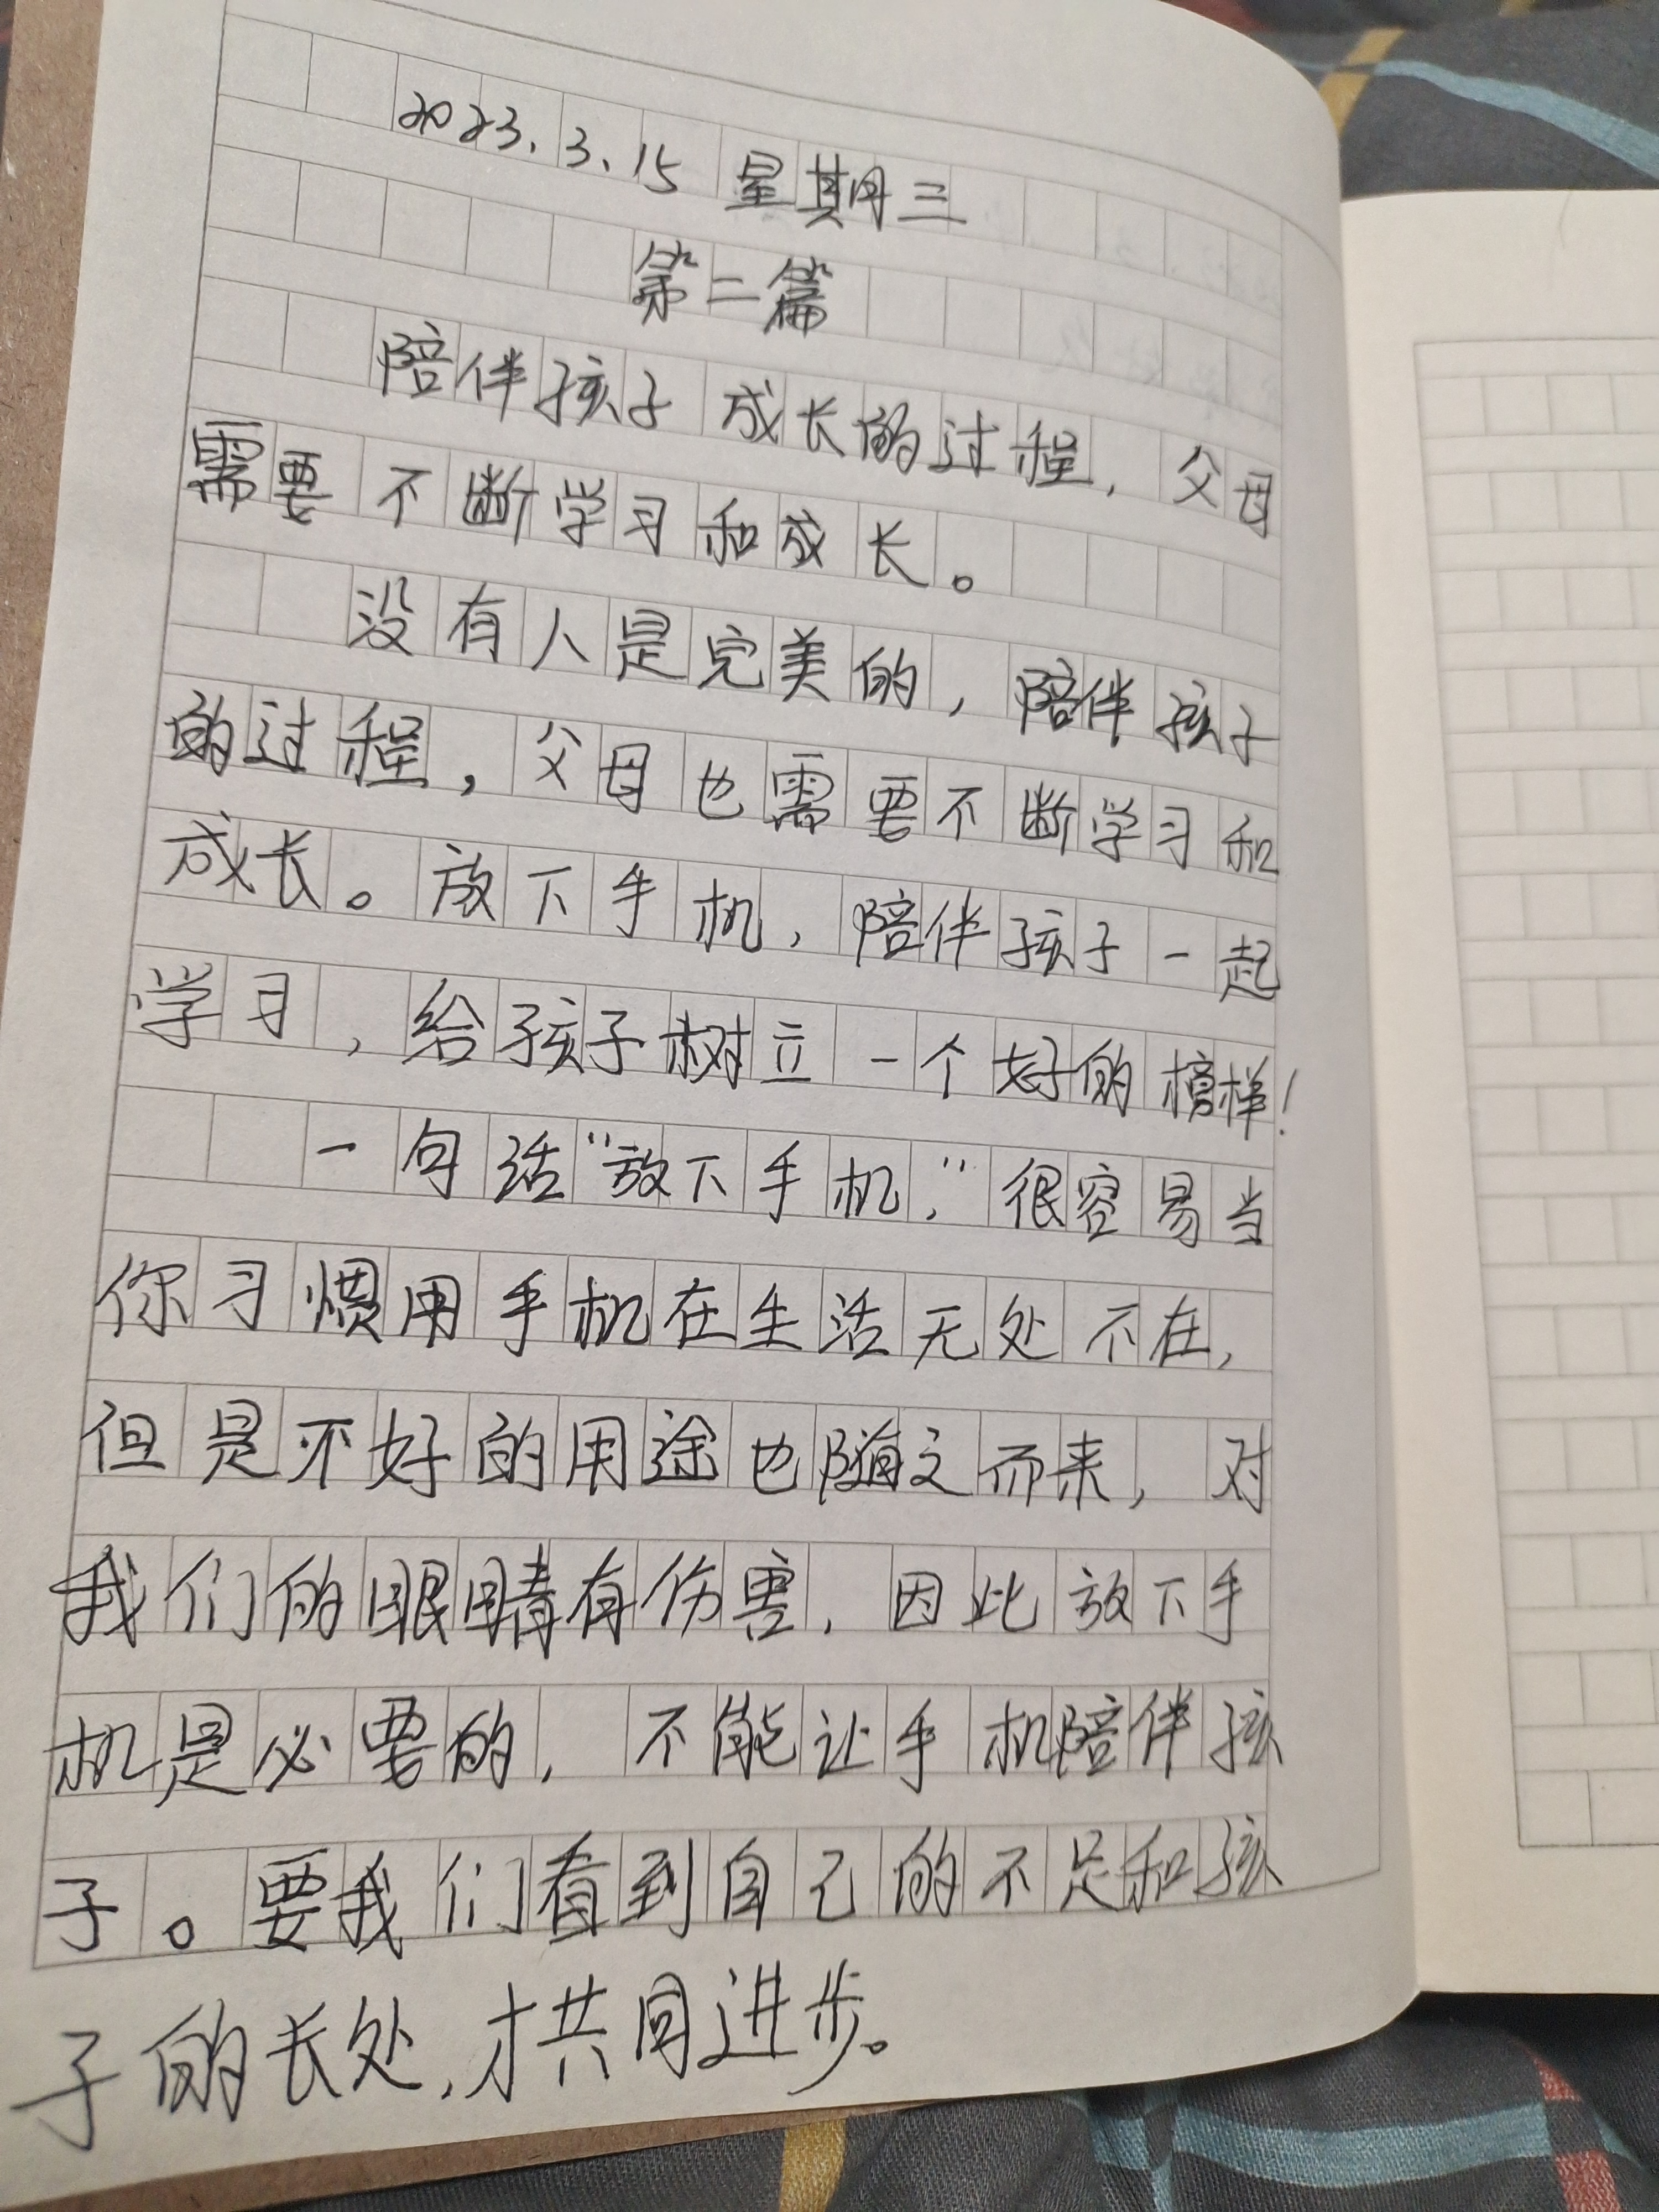 2023.3.15 星期三
第二篇
陪伴孩子成长的过程，父母
需要不断学习和成长。
没有人是完美的，陪伴孩子
的过程，父母也需要不断学习和
成长。放下手机，陪伴孩子一起
学习，给孩子树立一个好的榜样！
一句话“放下手机，”很容易当
你习惯用手机在生活无处不在，
但是不好的用途也随之而来，对
我们的眼睛有伤害，因此放下手
机是必要的，不能让手机陪伴孩
子。要我们看到自己的不足和孩
子的长处，才共同进步。